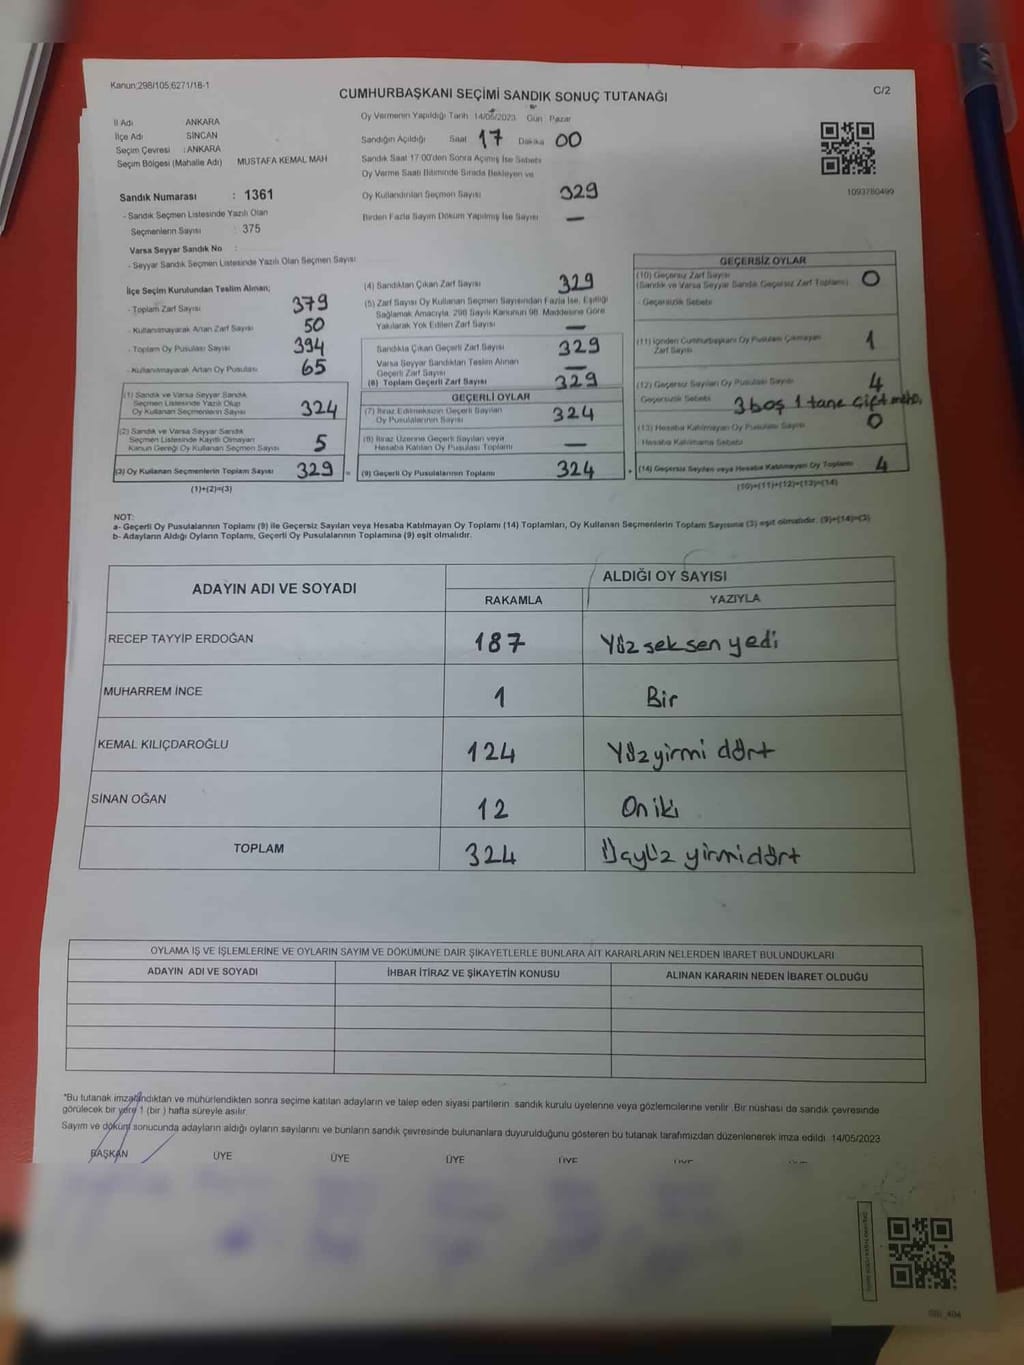 Kanun;298/105;6271/18-1
CUMHURBAŞKANI SEÇİMİ SANDIK SONUÇ TUTANAĞI
C/2
İl Adı ANKARA
İlçe Adı SİNCAN
Seçim Çevresi : ANKARA
Seçim Bölgesi (Mahalle Adı) MUSTAFA KEMAL MAH
Sandık Numarası : 1361
- Sandık Seçmen Listesinde Yazılı Olan
Seçmenlerin Sayısı : 375
Varsa Seyyar Sandık No :
- Seyyar Sandık Seçmen Listesinde Yazılı Olan Seçmen Sayısı
Oy Vermenin Yapıldığı Tarih 14/05/2023 Gün : Pazar
Sandığın Açıldığı Saat 17 Dakika 00
Sandık Saat 17:00'den Sonra Açılmış İse Sebebi
Oy Verme Saati Bitiminde Sırada Bekleyen ve
Oy Kullandırılan Seçmen Sayısı 329
Birden Fazla Sayım Döküm Yapılmış İse Sayısı —
1093780499
İlçe Seçim Kurulundan Teslim Alınan;
- Toplam Zarf Sayısı 379
- Kullanılmayarak Artan Zarf Sayısı 50
- Toplam Oy Pusulası Sayısı 394
- Kullanılmayarak Artan Oy Pusulası 65
(1) Sandık ve Varsa Seyyar Sandık
Seçmen Listesinde Yazılı Olup
Oy Kullanan Seçmenlerin Sayısı 324
(2) Sandık ve Varsa Seyyar Sandık
Seçmen Listesinde Kayıtlı Olmayan
Kanun Gereği Oy Kullanan Seçmen Sayısı 5
(3) Oy Kullanan Seçmenlerin Toplam Sayısı 329 =
(1)+(2)=(3)
(4) Sandıktan Çıkan Zarf Sayısı 329
(5) Zarf Sayısı Oy Kullanan Seçmen Sayısından Fazla İse, Eşitliği
Sağlamak Amacıyla, 298 Sayılı Kanunun 98. Maddesine Göre
Yakılarak Yok Edilen Zarf Sayısı —
Sandıkta Çıkan Geçerli Zarf Sayısı 329
Varsa Seyyar Sandıktan Teslim Alınan
Geçerli Zarf Sayısı —
(6) Toplam Geçerli Zarf Sayısı 329
GEÇERLİ OYLAR
(7) İtiraz Edilmeksizin Geçerli Sayılan
Oy Pusulalarının Sayısı 324
(8) İtiraz Üzerine Geçerli Sayılan veya
Hesaba Katılan Oy Pusulası Toplamı —
(9) Geçerli Oy Pusulalarının Toplamı 324 +
GEÇERSİZ OYLAR
(10) Geçersiz Zarf Sayısı 0
(Sandık ve Varsa Seyyar Sandık Geçersiz Zarf Toplamı)
- Geçersizlik Sebebi
(11) İçinden Cumhurbaşkanı Oy Pusulası Çıkmayan
Zarf Sayısı 1
(12) Geçersiz Sayılan Oy Pusulası Sayısı 4
Geçersizlik Sebebi 3 boş 1 tane çift
(13) Hesaba Katılmayan Oy Pusulası Sayısı 0
Hesaba Katılmama Sebebi
(14) Geçersiz Sayılan veya Hesaba Katılmayan Oy Toplamı 4
(10)+(11)+(12)+(13)=(14)
NOT:
a- Geçerli Oy Pusulalarının Toplamı (9) ile Geçersiz Sayılan veya Hesaba Katılmayan Oy Toplamı (14) Toplamları, Oy Kullanan Seçmenlerin Toplam Sayısına (3) eşit olmalıdır. (9)+(14)=(3)
b- Adayların Aldığı Oyların Toplamı, Geçerli Oy Pusulalarının Toplamına (9) eşit olmalıdır.
ADAYIN ADI VE SOYADI ALDIĞI OY SAYISI
RAKAMLA YAZIYLA
RECEP TAYYİP ERDOĞAN 187 Yüz seksen yedi
MUHARREM İNCE 1 Bir
KEMAL KILIÇDAROĞLU 124 Yüz yirmi dört
SİNAN OĞAN 12 On iki
TOPLAM 324 Üçyüz yirmidört
OYLAMA İŞ VE İŞLEMLERİNE VE OYLARIN SAYIM VE DÖKÜMÜNE DAİR ŞİKAYETLERLE BUNLARA AİT KARARLARIN NELERDEN İBARET BULUNDUKLARI
ADAYIN ADI VE SOYADI İHBAR İTİRAZ VE ŞİKAYETİN KONUSU ALINAN KARARIN NEDEN İBARET OLDUĞU
*Bu tutanak imzalandıktan ve mühürlendikten sonra seçime katılan adayların ve talep eden siyasi partilerin sandık kurulu üyelerine veya gözlemcilerine verilir. Bir nüshası da sandık çevresinde
görülecek bir yere 1 (bir ) hafta süreyle asılır.
Sayım ve döküm sonucunda adayların aldığı oyların sayılarını ve bunların sandık çevresinde bulunanlara duyurulduğunu gösteren bu tutanak tarafımızdan düzenlenerek imza edildi. 14/05/2023
BAŞKAN ÜYE ÜYE ÜYE ÜYE ÜYE